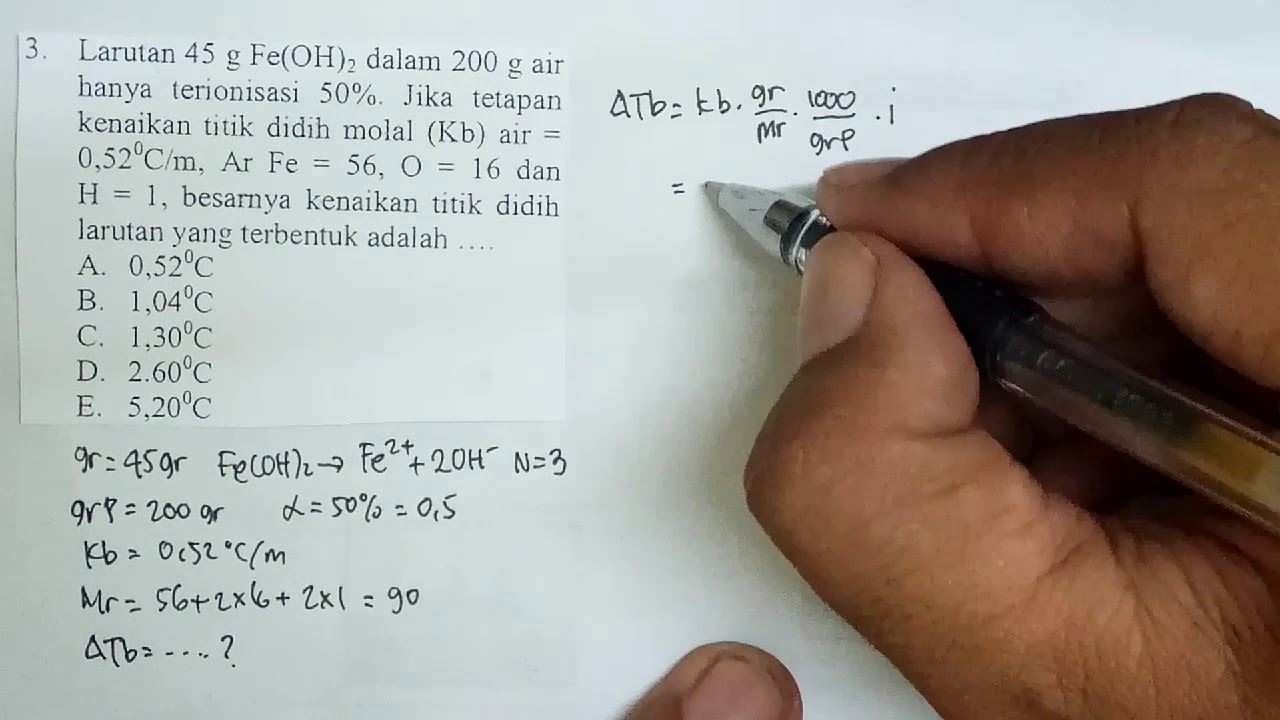 3. Larutan 45 g Fe(OH)₂ dalam 200 g air
hanya terionisasi 50%. Jika tetapan
kenaikan titik didih molal (Kb) air =
0,52⁰C/m, Ar Fe = 56, O = 16 dan
H = 1, besarnya kenaikan titik didih
larutan yang terbentuk adalah ....
A. 0,52⁰C
B. 1,04⁰C
C. 1,30⁰C
D. 2.60⁰C
E. 5,20⁰C
gr = 45 gr Fe(OH)₂ → Fe²⁺ + 2OH⁻ N = 3
grp = 200 gr α = 50% = 0,5
Kb = 0,52 °C/m
Mr = 56 + 2×16 + 2×1 = 90
ΔTb = .... ?
ΔTb = kb . gr/Mr . 1000/grp . i
=